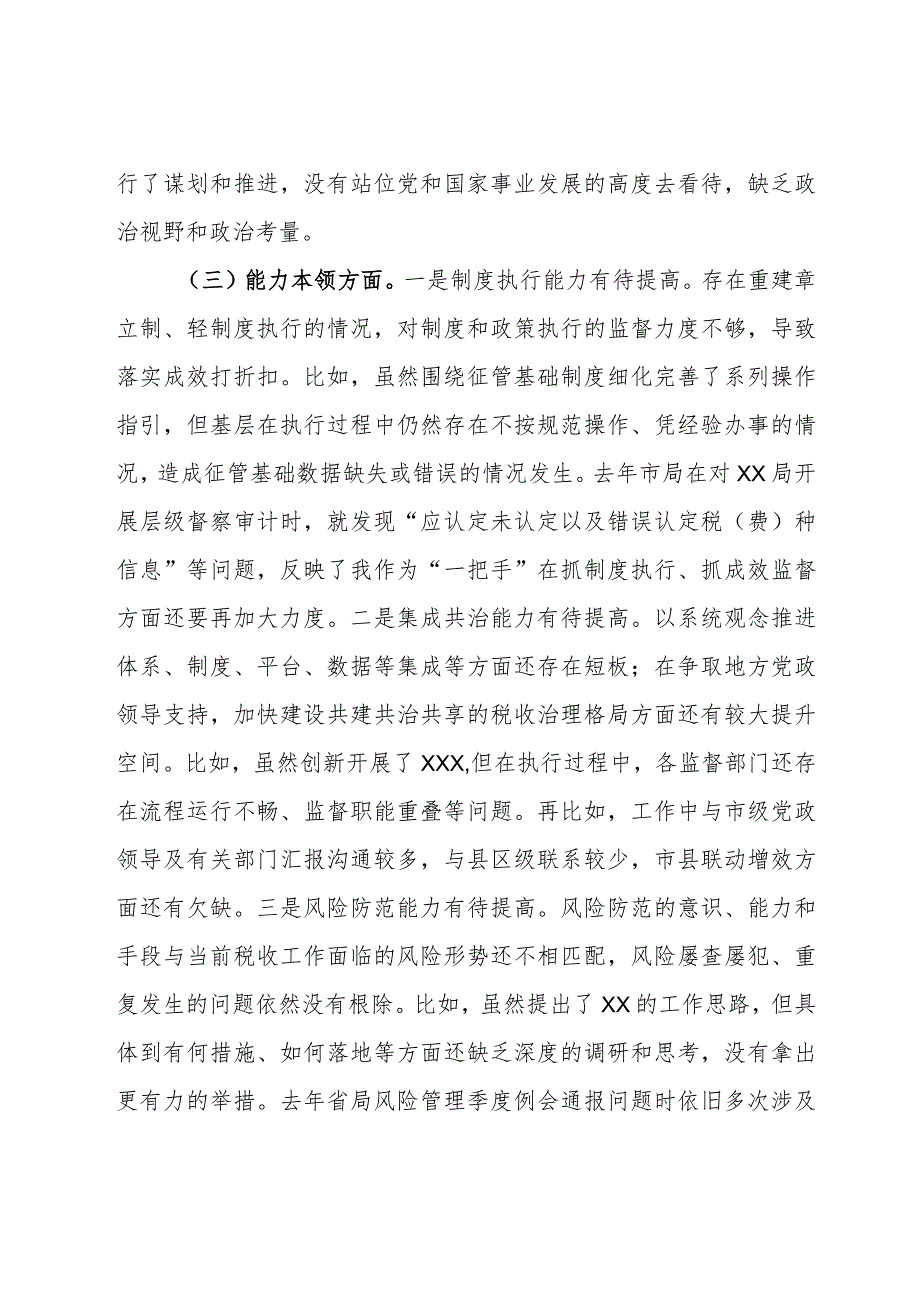 行了谋划和推进，没有站位党和国家事业发展的高度去看待，缺乏政
治视野和政治考量。
（三）能力本领方面。一是制度执行能力有待提高。存在重建章
立制、轻制度执行的情况，对制度和政策执行的监督力度不够，导致
落实成效打折扣。比如，虽然围绕征管基础制度细化完善了系列操作
指引，但基层在执行过程中仍然存在不按规范操作、凭经验办事的情
况，造成征管基础数据缺失或错误的情况发生。去年市局在对 XX 局开
展层级督察审计时，就发现“应认定未认定以及错误认定税（费）种
信息”等问题，反映了我作为“一把手”在抓制度执行、抓成效监督
方面还要再加大力度。二是集成共治能力有待提高。以系统观念推进
体系、制度、平台、数据等集成等方面还存在短板；在争取地方党政
领导支持，加快建设共建共治共享的税收治理格局方面还有较大提升
空间。比如，虽然创新开展了 XXX,但在执行过程中，各监督部门还存
在流程运行不畅、监督职能重叠等问题。再比如，工作中与市级党政
领导及有关部门汇报沟通较多，与县区级联系较少，市县联动增效方
面还有欠缺。三是风险防范能力有待提高。风险防范的意识、能力和
手段与当前税收工作面临的风险形势还不相匹配，风险屡查屡犯、重
复发生的问题依然没有根除。比如，虽然提出了 XX 的工作思路，但具
体到有何措施、如何落地等方面还缺乏深度的调研和思考，没有拿出
更有力的举措。去年省局风险管理季度例会通报问题时依旧多次涉及